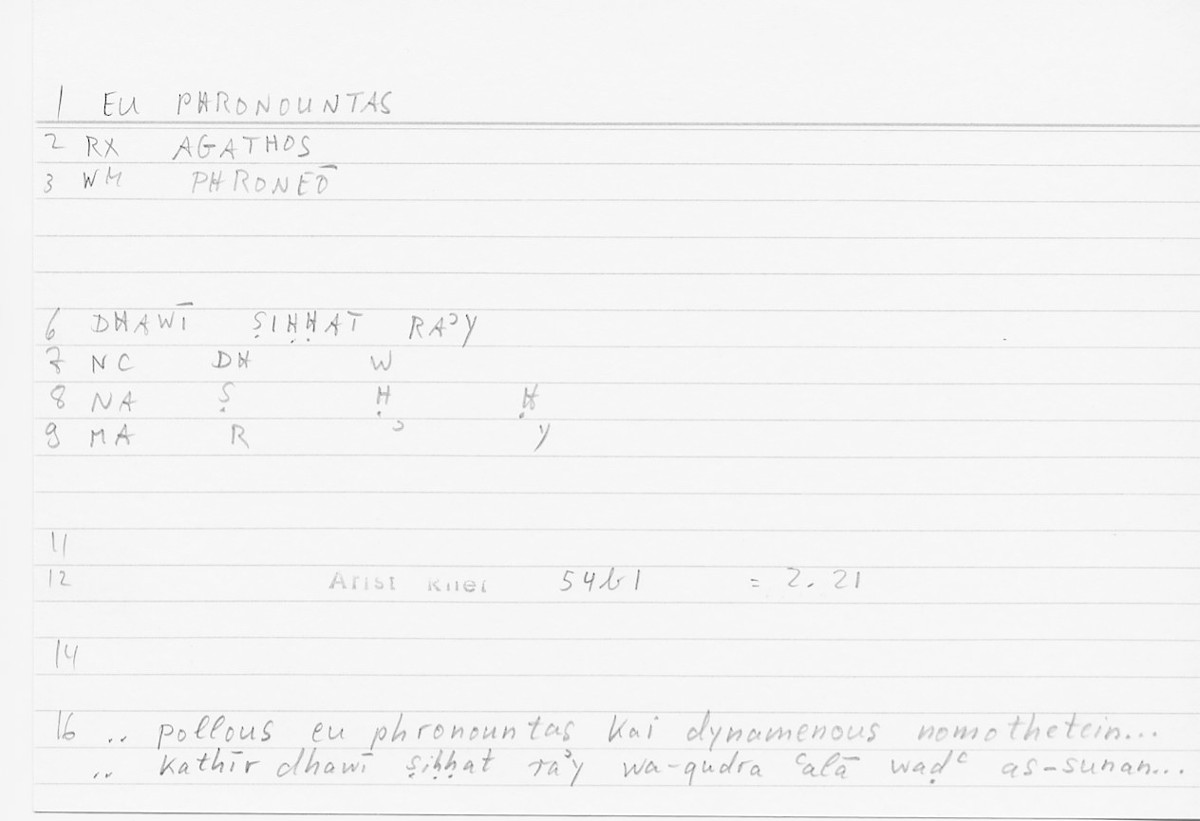 1 EU PHRONOUNTAS
2 RX AGATHOS
3 WM PHRONEŌ
6 DHAWĪ ṢIḤḤAT RAʾY
7 NC DH W
8 NA Ṣ Ḥ Ḥ
9 MA R ʾ Y
11
12 Arist Rhet 54b1 = 2. 21
14
16 .. pollous eu phronountas kai dynamenous nomothetein...
.. kathīr dhawī ṣiḥḥat raʾy wa-qudra ʿalā waḍʿ as-sunan...